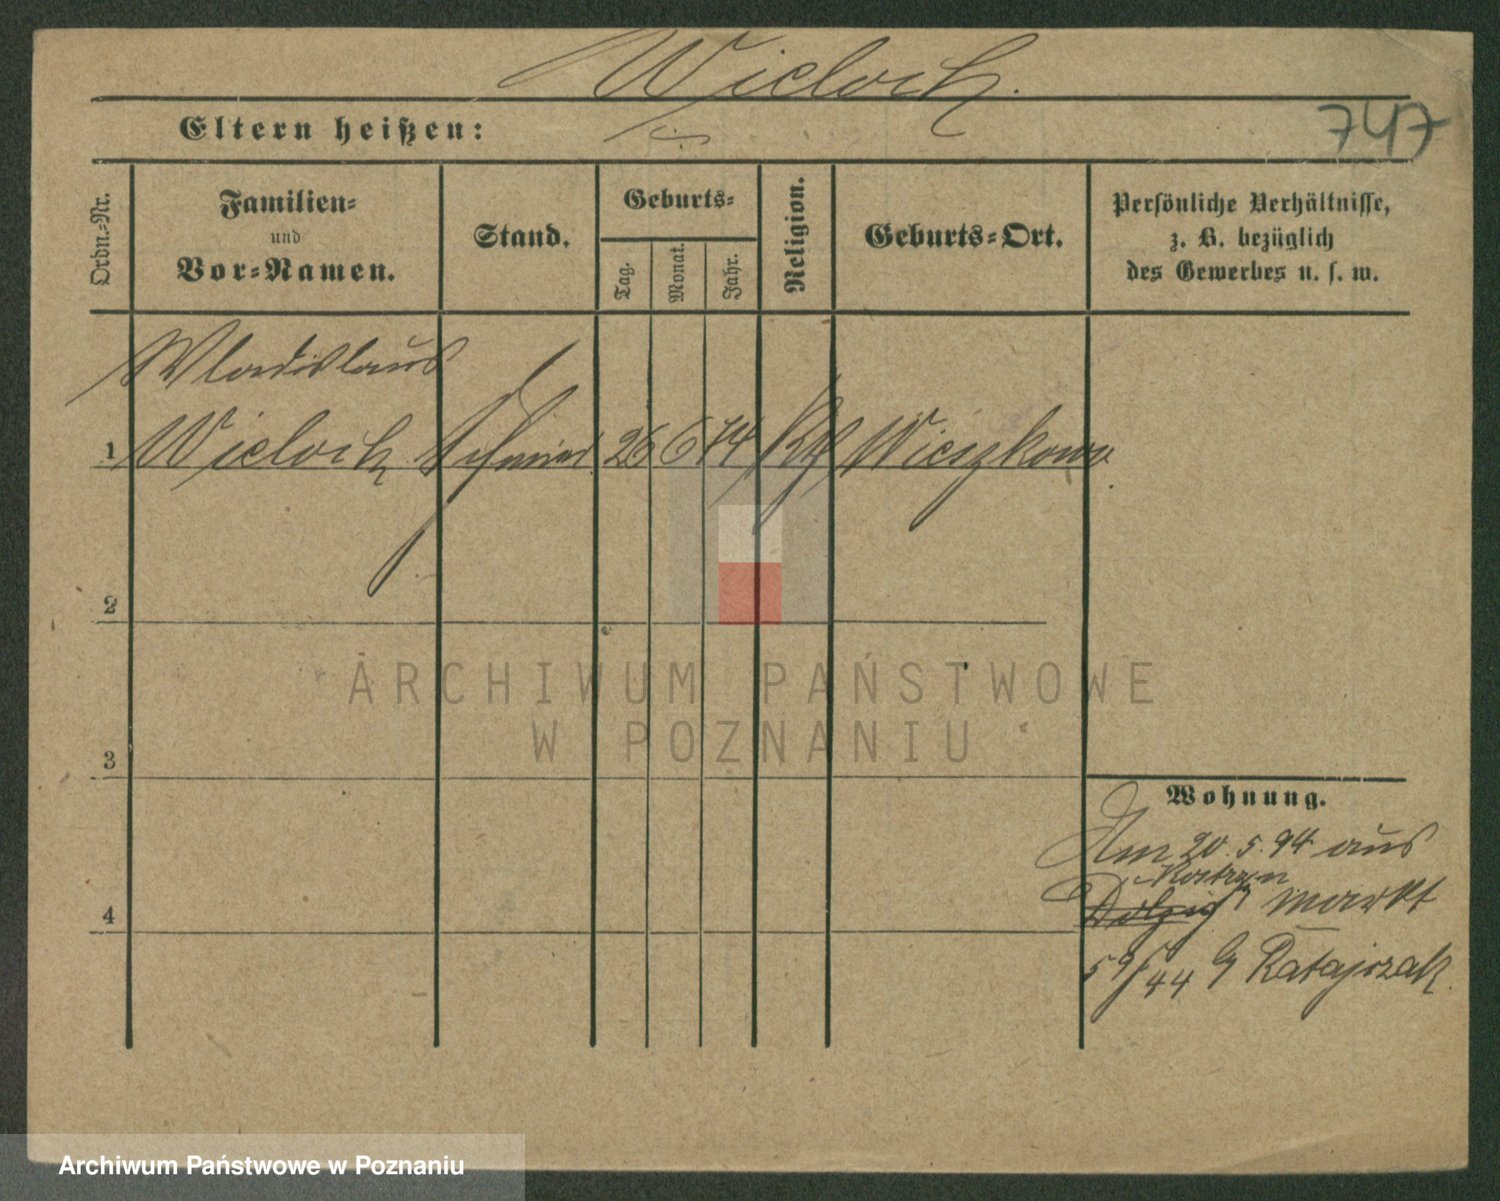 Wieloch.
Eltern heißen:
747
Ordn.-Nr.
Familien-
und
Vor-Namen.
Stand.
Geburts-
Tag.
Monat.
Jahr.
Religion.
Geburts-Ort.
Persönliche Verhältnisse,
z. B. bezüglich
des Gewerbes u. s. w.
Wladislaus
1 Wieloch Schmied 26 6 74 Kth Wieszkowo
2
3
4
ARCHIWUM PAŃSTWOWE
W POZNANIU
Wohnung.
Am 20.5.94 aus
Kotzen
Dolzig markt
59/44 Ratajszak
Archiwum Państwowe w Poznaniu